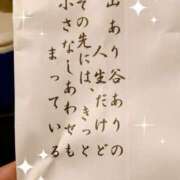 山あり谷ありの
人生だけど
その先には、きっと
小さなしあわせも
まっている